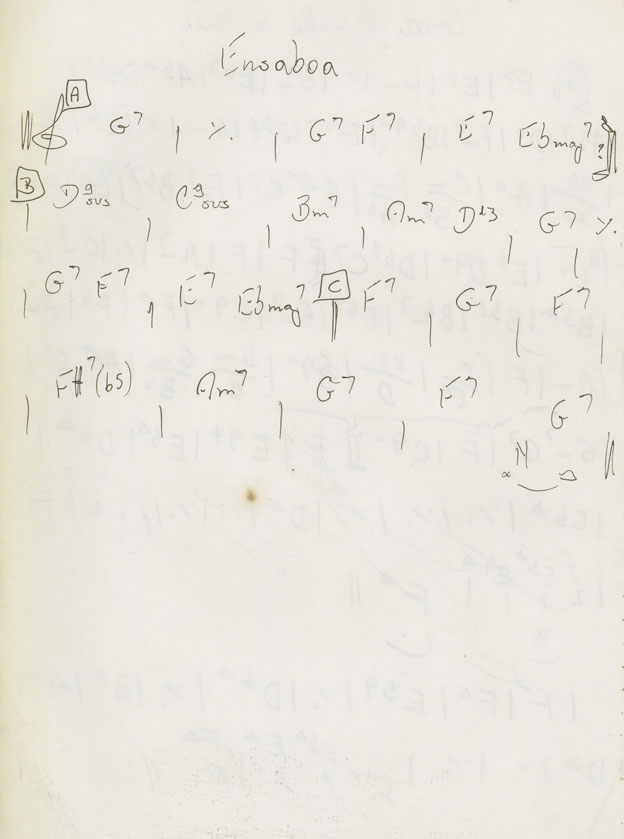 Ensaboa
A
G7 | ٪ | G7 F7 | E7 Ebmaj7
B
| D9sus | C9sus | Bm7 | Am7 D13 | G7 | ٪
| G7 F7 | E7 Ebmaj7 C || F7 | G7 | F7 |
| F#7(b5) | Am7 | G7 | F7 | G7 ||